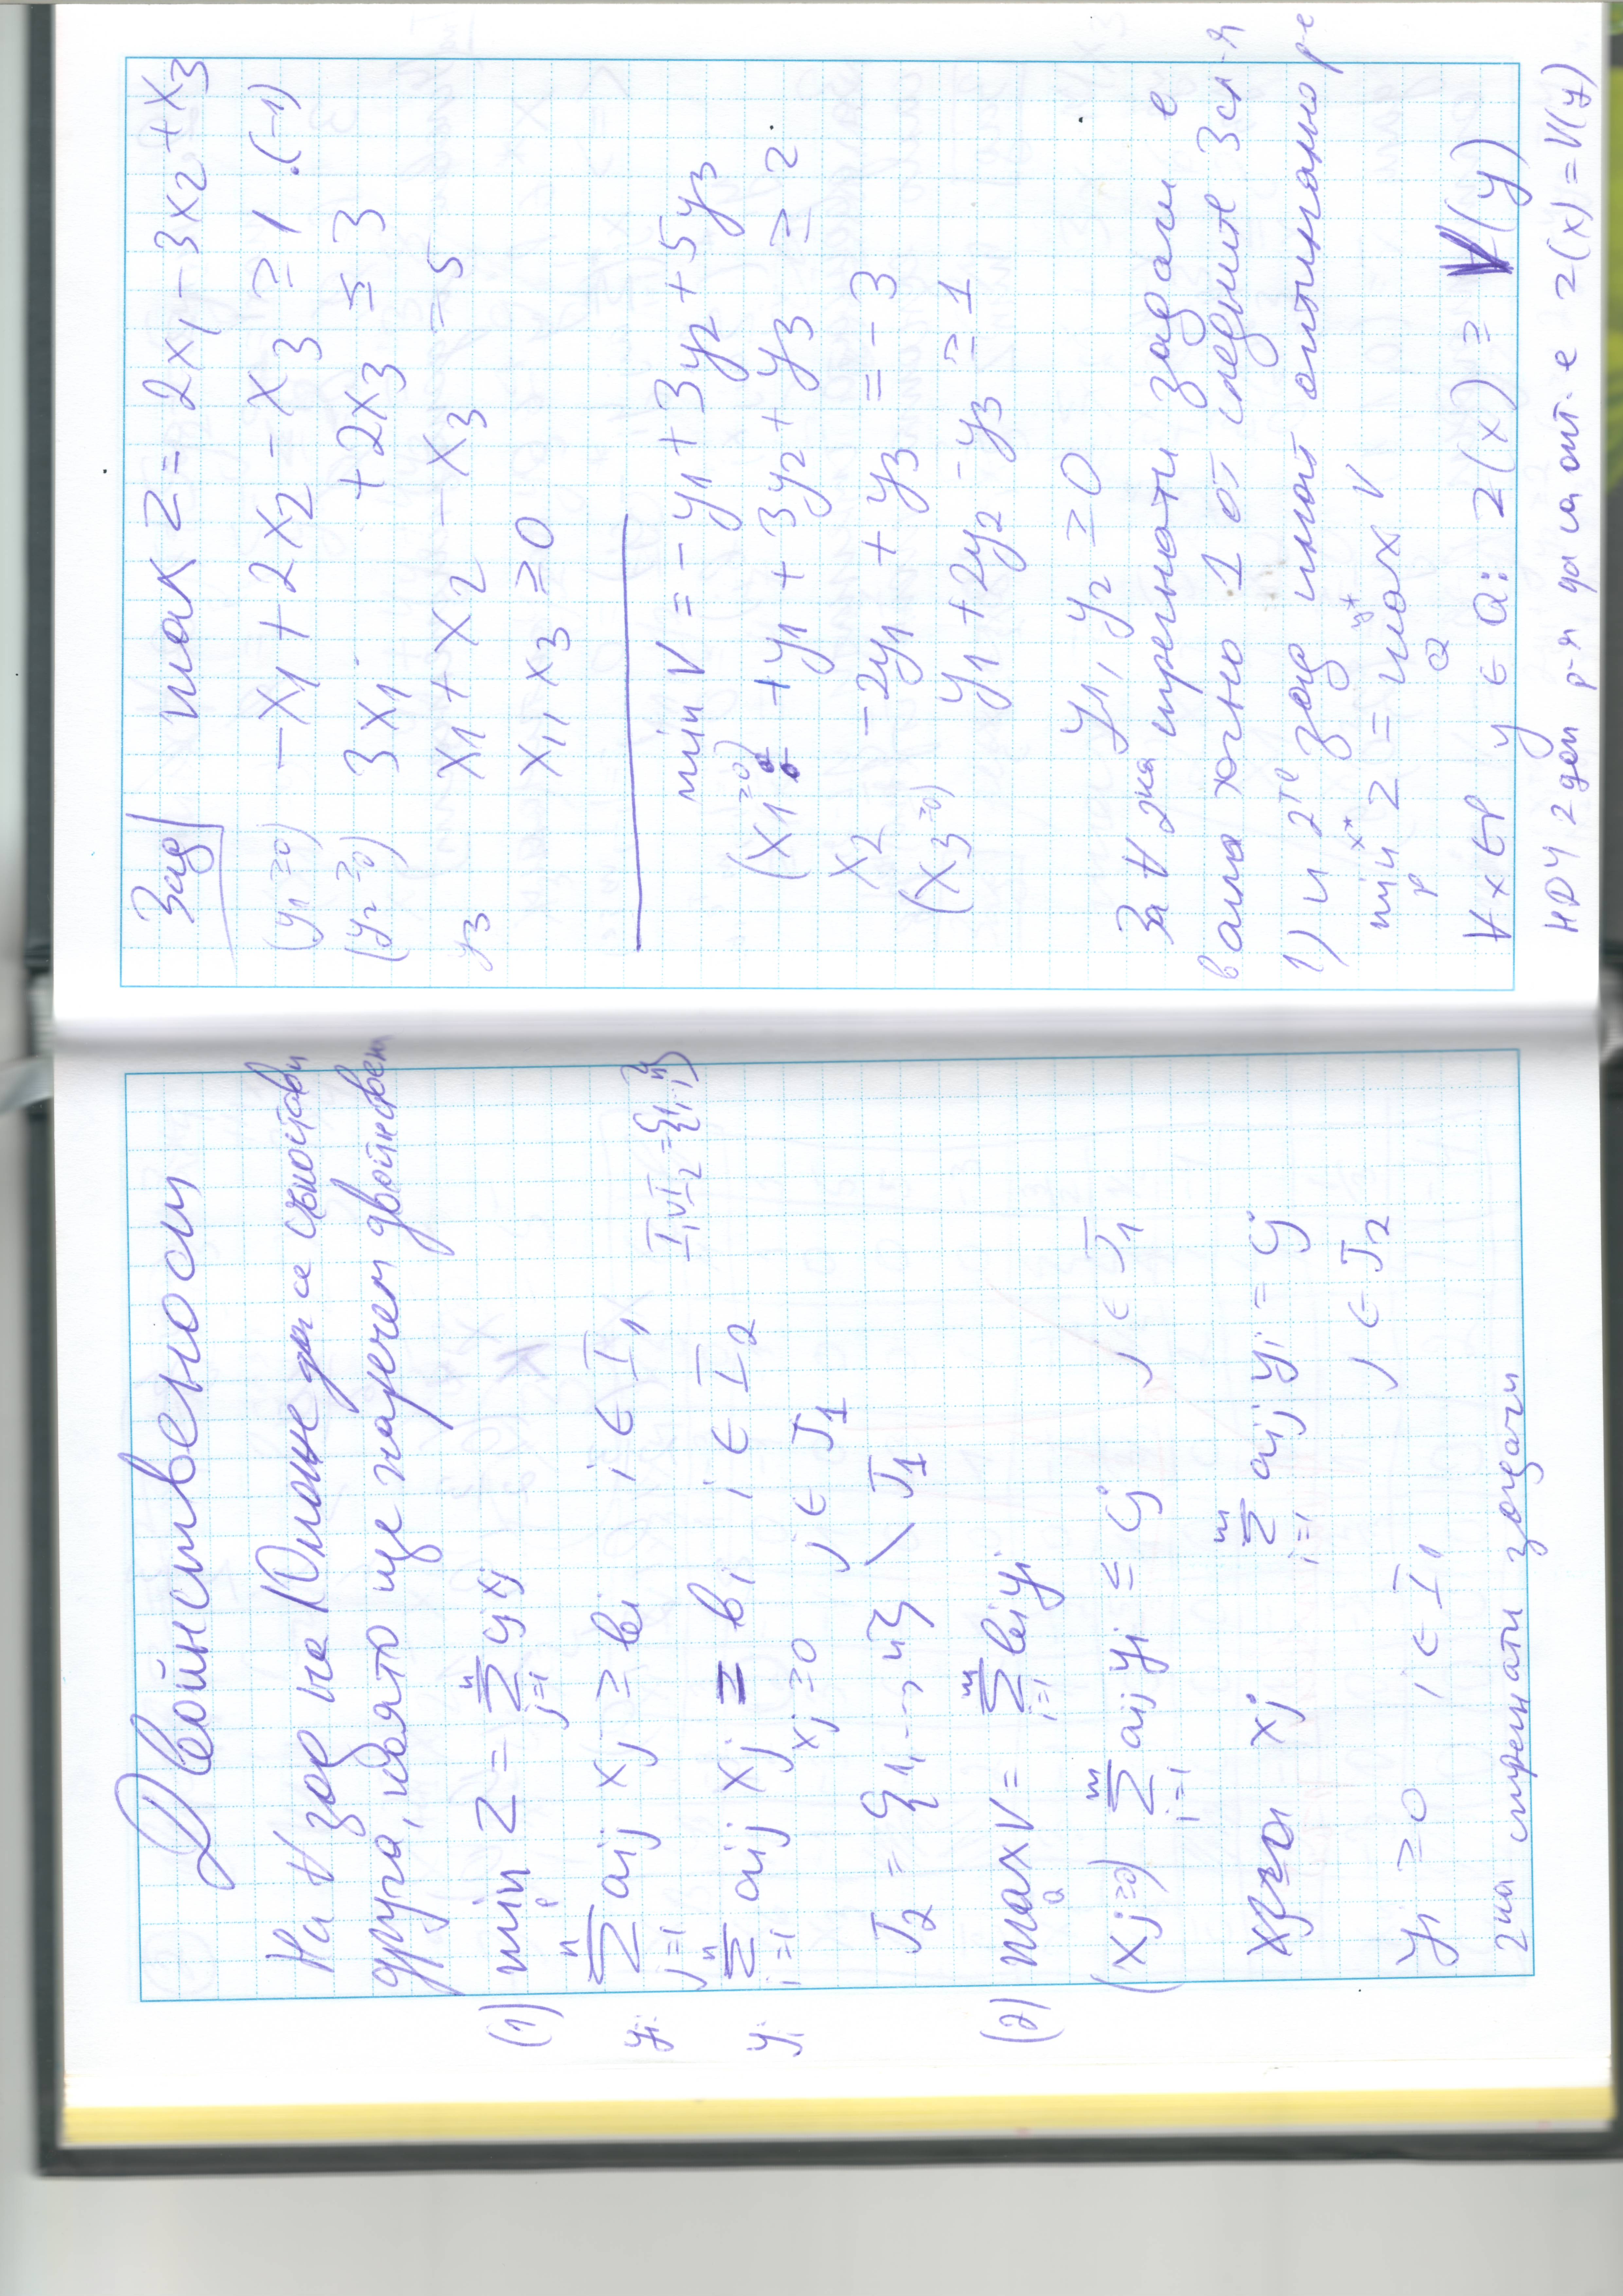 Двойнственост
На ∀ зад на ЮЛ може да се съпостави
друга, която ще наречем двойнствен
(1) min z = Σ cj xj
P j=1 n
yi Σ aij xj ≥ bi i ∈ I1
j=1 n I1∪I2 = {1..n}
yi Σ aij xj = bi i ∈ I2
i=1 n xj ≥ 0 j ∈ J1
J2 = {1,..,n} \ J1
(2) max V = Σ bi yi
Q i=1 m
(xj ≥0) Σ aij yi ≤ cj j ∈ J1
i=1 m
xj Σ aij yi = cj
i=1 m j ∈ J2
yi ≥ 0 i ∈ I1
2ка спрегнати задачи
Зад
max z = 2x1 - 3x2 + x3
(y1 ≥0) -x1 + 2x2 - x3 ≥ 1 .(-1)
(y2 ≥0) 3x1 + 2x3 ≤ 3
y3 x1 + x2 - x3 = 5
x1, x3 ≥ 0
min V = -y1 + 3y2 + 5y3
(x1 ≥0) +y1 + 3y2 + y3 ≥ 2
x2 -2y1 + y3 = -3
(x3 ≥0) y1 + 2y2 - y3 ≥ 1
y1, y2 ≥ 0
За ∀ 2ка спрегнати задачи е
вална точно 1 от следните 3 сл-я
1) и 2те зад имат оптимално р-е
min z = max V
P x* Q y*
∀ x ∈ P y ∈ Q: z(x) ≥ V(y)
НДУ 2 доп р-я да са опт. е z(x) = V(y)